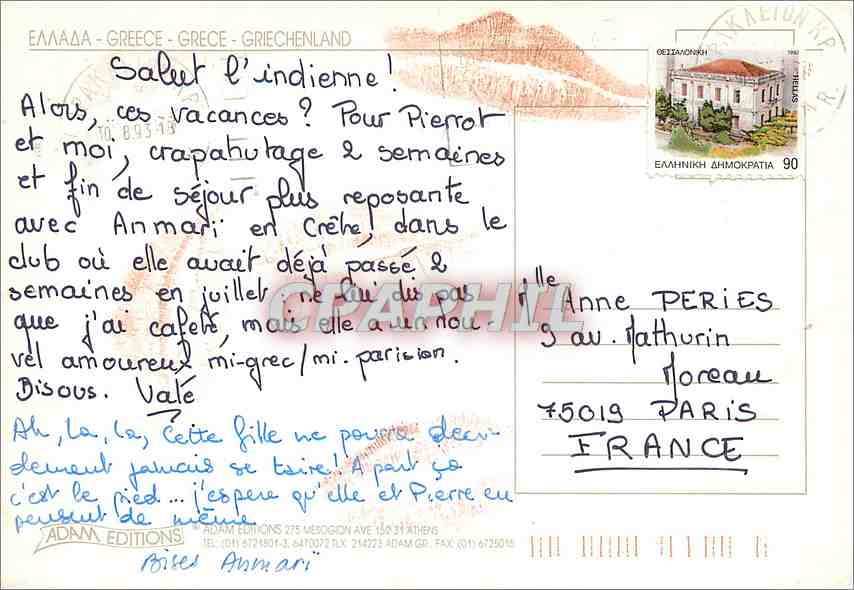 ΕΛΛΑΔΑ - GREECE - GRECE - GRIECHENLAND
Salut l'indienne !
Alors, ces vacances ? Pour Pierrot
et moi, crapahutage 2 semaines
et fin de séjour plus reposante
avec Anmarï en Crête, dans le
club où elle avait déjà passé 2
semaines en juillet : ne lui dis pas
que j'ai cafeté, mais elle a un nou-
vel amoureux mi-grec/mi-parision.
Bisous. Valé
Ah, la, la, Cette fille ne pourra déci-
dement jamais se taire ! A part ça
c'est le pied... j'espère qu'elle et Pierre en
pensent de même
Bises Anmarï
ADAM EDITIONS
© ADAM EDITIONS 275 MESOGION AVE 150 31 ATHENS
TEL: (01) 6721801-3, 6470072 TLX 214223 ADAM GR, FAX: (01) 6725015
ΘΕΣΣΑΛΟΝΙΚΗ 1992
HELLAS
ΕΛΛΗΝΙΚΗ ΔΗΜΟΚΡΑΤΙΑ 90
10.8.93
Mlle Anne PERIES
9 av. Mathurin
Moreau
75019 PARIS
FRANCE
CPAPHIL